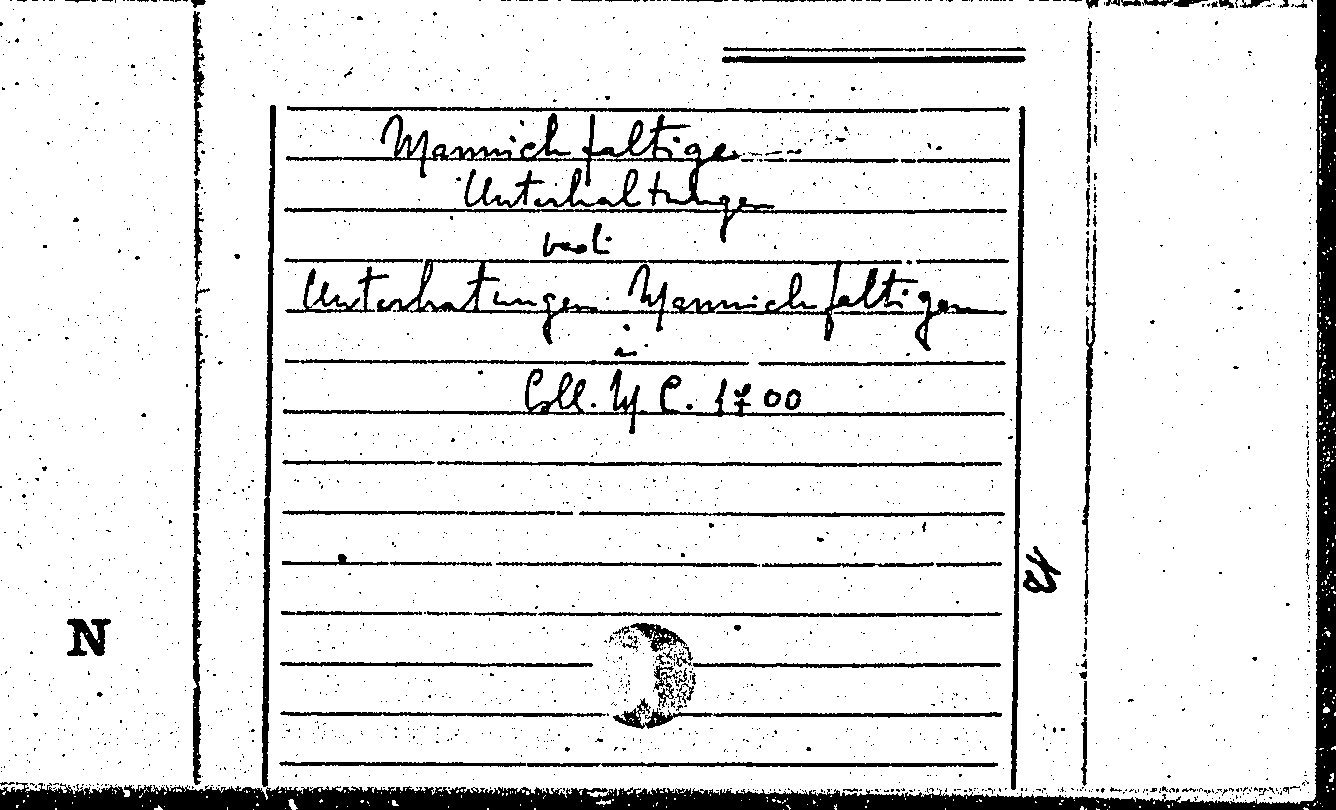 Mannichfaltige
Unterhaltungen
vedi
Unterhatungen Mannichfaltigen
Coll. M C. 1700
N